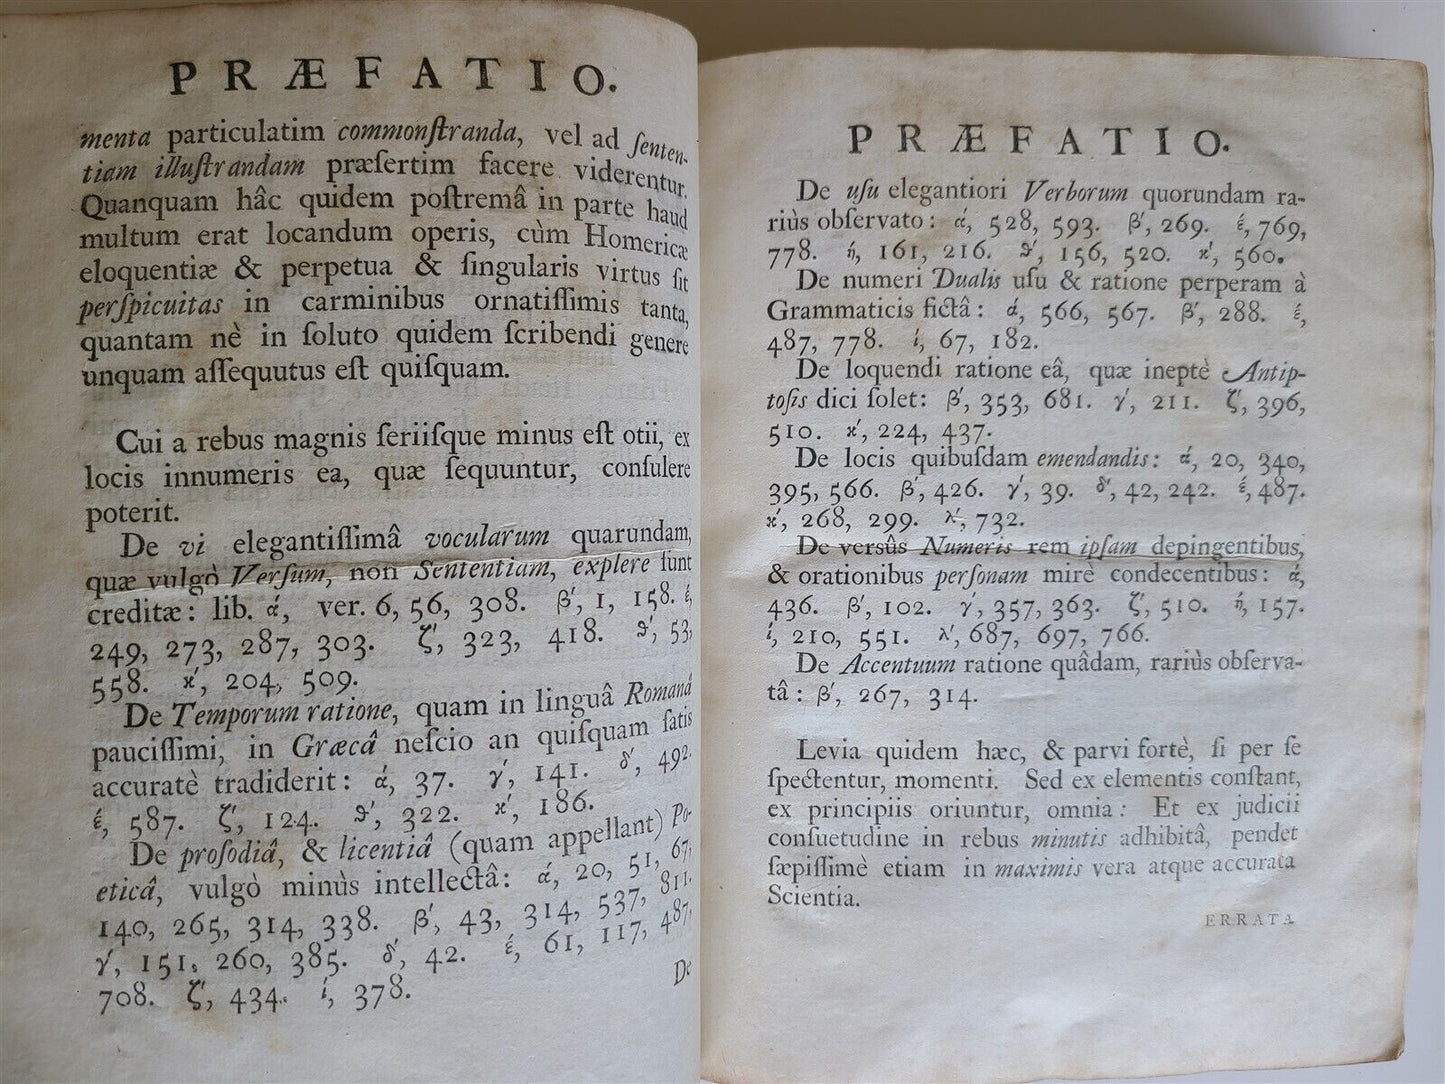 PRÆFATIO.
menta particulatim commonſtranda, vel ad ſenten-
tiam illuſtrandam præſertim facere viderentur.
Quanquam hâc quidem poſtremâ in parte haud
multum erat locandum operis, cùm Homericæ
eloquentiæ & perpetua & ſingularis virtus ſit
perſpicuitas in carminibus ornatiſſimis tanta,
quantam nè in ſoluto quidem ſcribendi genere
unquam aſſequutus eſt quiſquam.
Cui a rebus magnis ſeriiſque minus eſt otii, ex
locis innumeris ea, quæ ſequuntur, conſulere
poterit.
De vi elegantiſſimâ vocularum quarundam,
quæ vulgò Verſum, non Sententiam, explere ſunt
creditæ: lib. ά, ver. 6, 56, 308. β′, 1, 158. έ,
249, 273, 287, 303. ζ′, 323, 418. ϑ′, 53,
558. ϰ′, 204, 509.
De Temporum ratione, quam in linguâ Romanâ
pauciſſimi, in Græcâ neſcio an quiſquam ſatis
accuratè tradiderit: ά, 37. γ′, 141. δ′, 492.
έ, 587. ζ′, 124. ϑ′, 322. ϰ′, 186.
De proſodiâ, & licentiâ (quam appellant) Po-
eticâ, vulgò minùs intellectâ: ά, 20, 51, 67,
140, 265, 314, 338. β′, 43, 314, 537, 811.
γ′, 151, 260, 385. δ′, 42. έ, 61, 117, 487,
708. ζ′, 434. ί, 378.
De
PRÆFATIO.
De uſu elegantiori Verborum quorundam ra-
riùs obſervato: ά, 528, 593. β′, 269. έ, 769,
778. ή, 161, 216. ϑ′, 156, 520. ϰ′, 560.
De numeri Dualis uſu & ratione perperam à
Grammaticis fictâ: ά, 566, 567. β′, 288. έ,
487, 778. ί, 67, 182.
De loquendi ratione eâ, quæ ineptè Antip-
toſis dici ſolet: β′, 353, 681. γ′, 211. ζ′, 396,
510. ϰ′, 224, 437.
De locis quibuſdam emendandis: ά, 20, 340,
395, 566. β′, 426. γ′, 39. δ′, 42, 242. έ, 487.
ϰ′, 268, 299. λ′, 732.
De versûs Numeris rem ipſam depingentibus,
& orationibus perſonam mirè condecentibus: ά,
436. β′, 102. γ′, 357, 363. ζ′, 510. ή, 157.
ί, 210, 551. λ′, 687, 697, 766.
De Accentuum ratione quâdam, rariùs obſerva-
tâ: β′, 267, 314.
Levia quidem hæc, & parvi fortè, ſi per ſe
ſpectentur, momenti. Sed ex elementis conſtant,
ex principiis oriuntur, omnia: Et ex judicii
conſuetudine in rebus minutis adhibitâ, pendet
ſæpiſſimè etiam in maximis vera atque accurata
Scientia.
ERRATA